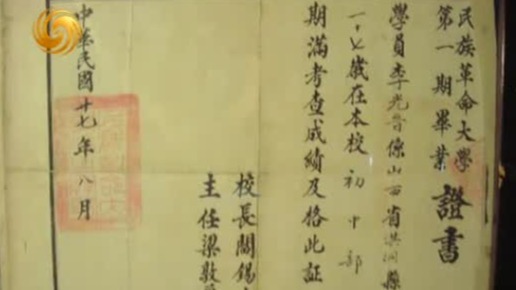 民族革命大學
第一期畢業
證書
學員李光晉係山西省洪洞縣
七歲在本校初中部
期滿考查成績及格此証
校長閻錫
主任梁敦
中華民國廿七年八月